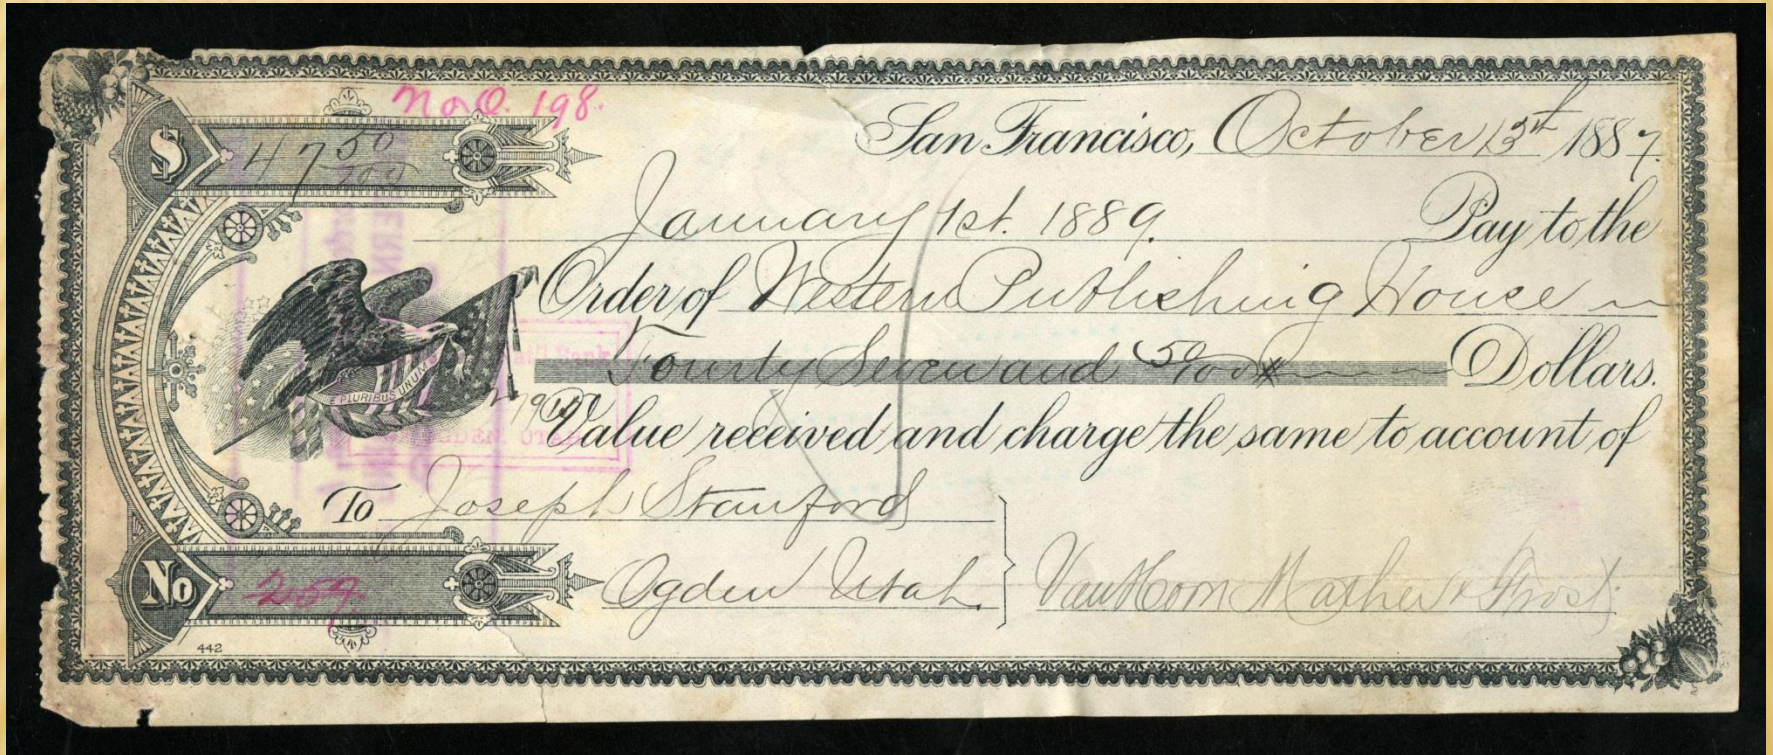 No O. 198.
$ 47 50/100
San Francisco, October 15th 1887.
January 1st. 1889. Pay to the
Order of Western Publishing House
Fourty Seven and 50/100 Dollars.
E PLURIBUS UNUM
Bank
Value received and charge the same to account of
OGDEN UTAH
To Joseph Stanford
Ogden Utah. Van Horn Mather & Frost.
No 259.
442